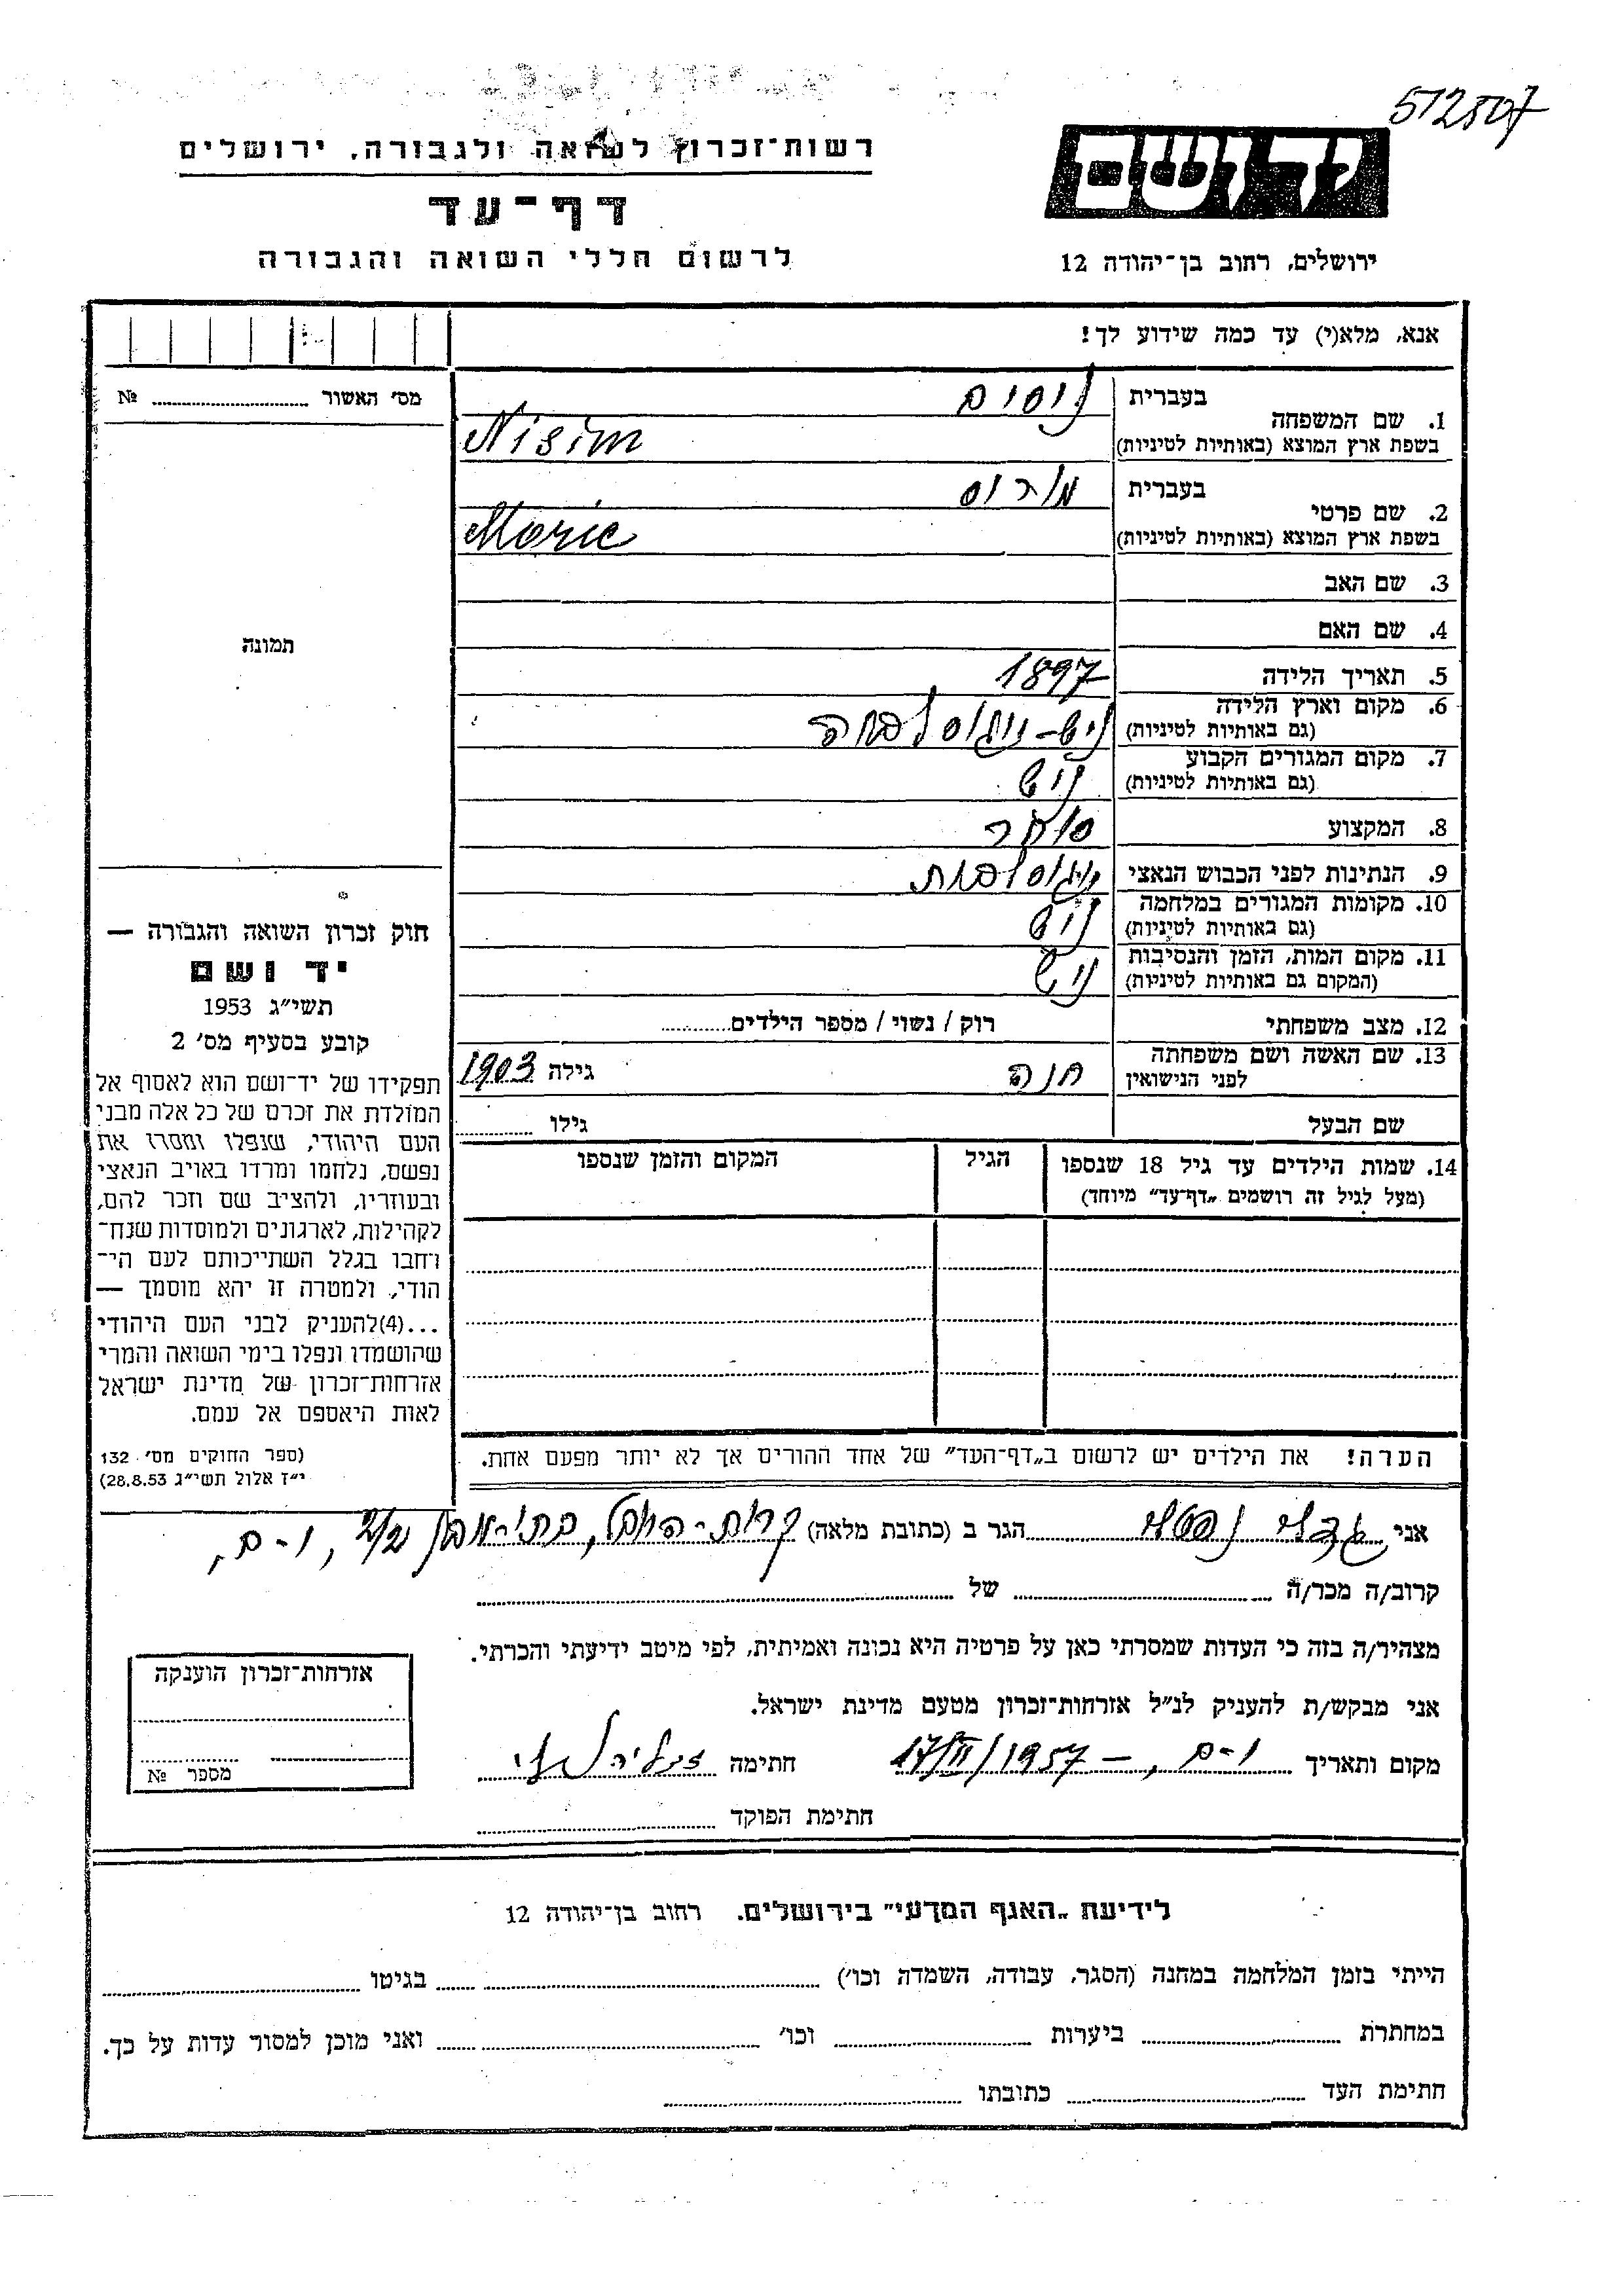 512507
יד ושם
רשות־זכרון לשואה ולגבורה, ירושלים
דף־עד
לרשום חללי השואה והגבורה
ירושלים, רחוב בן־יהודה 12
אנא, מלא(י) עד כמה שידוע לך!
מס' האשור № 
1. שם המשפחה בעברית ניסים
בשפת ארץ המוצא (באותיות לטיניות) Nisim
2. שם פרטי בעברית מוריס
בשפת ארץ המוצא (באותיות לטיניות) Moric
3. שם האב
4. שם האם
תמונה
5. תאריך הלידה 1897
6. מקום וארץ הלידה (גם באותיות לטיניות) ניש-יוגוסלביה
7. מקום המגורים הקבוע (גם באותיות לטיניות) ניש
8. המקצוע סוחר
9. הנתינות לפני הכבוש הנאצי יוגוסלבית
10. מקומות המגורים במלחמה (גם באותיות לטיניות) ניש
11. מקום המות, הזמן והנסיבות (המקום גם באותיות לטיניות) ניש
12. מצב משפחתי רוק / נשוי / מספר הילדים
13. שם האשה ושם משפחתה לפני הנישואין חנה גילה 1903
שם הבעל גילו
14. שמות הילדים עד גיל 18 שנספו (מעל לגיל זה רושמים „דף־עד" מיוחד) הגיל המקום והזמן שנספו
חוק זכרון השואה והגבורה —
יד ושם
תשי״ג 1953
קובע בסעיף מס' 2
תפקידו של יד־ושם הוא לאסוף אל
המולדת את זכרם של כל אלה מבני
העם היהודי, שנפלו ומסרו את
נפשם, נלחמו ומרדו באויב הנאצי
ובעוזריו, ולהציב שם וזכר להם,
לקהילות, לארגונים ולמוסדות שנח־
רחבו בגלל השתייכותם לעם הי־
הודי, ולמטרה זו יהא מוסמך —
...(4)להעניק לבני העם היהודי
שהושמדו ונפלו בימי השואה והמרי
אזרחות־זכרון של מדינת ישראל
לאות היאספם אל עמם.
(ספר החוקים מס' 132
י״ז אלול תשי״ג 28.8.53)
הערה! את הילדים יש לרשום ב„דף־העד" של אחד ההורים אך לא יותר מפעם אחת.
אני הגר ב (כתובת מלאה) קרית-היובל, י-ם,
קרוב/ה מכר/ה של
מצהיר/ה בזה כי העדות שמסרתי כאן על פרטיה היא נכונה ואמיתית, לפי מיטב ידיעתי והכרתי.
אני מבקש/ת להעניק לנ״ל אזרחות־זכרון מטעם מדינת ישראל.
מקום ותאריך י-ם, – 17/II/1957 חתימה
חתימת הפוקד
אזרחות־זכרון הוענקה
מספר №
לידיעת „האגף המדעי" בירושלים. רחוב בן־יהודה 12
הייתי בזמן המלחמה במחנה (הסגר, עבודה, השמדה וכו') בגיטו
במחתרת ביערות וכו' ואני מוכן למסור עדות על כך.
חתימת העד כתובתו